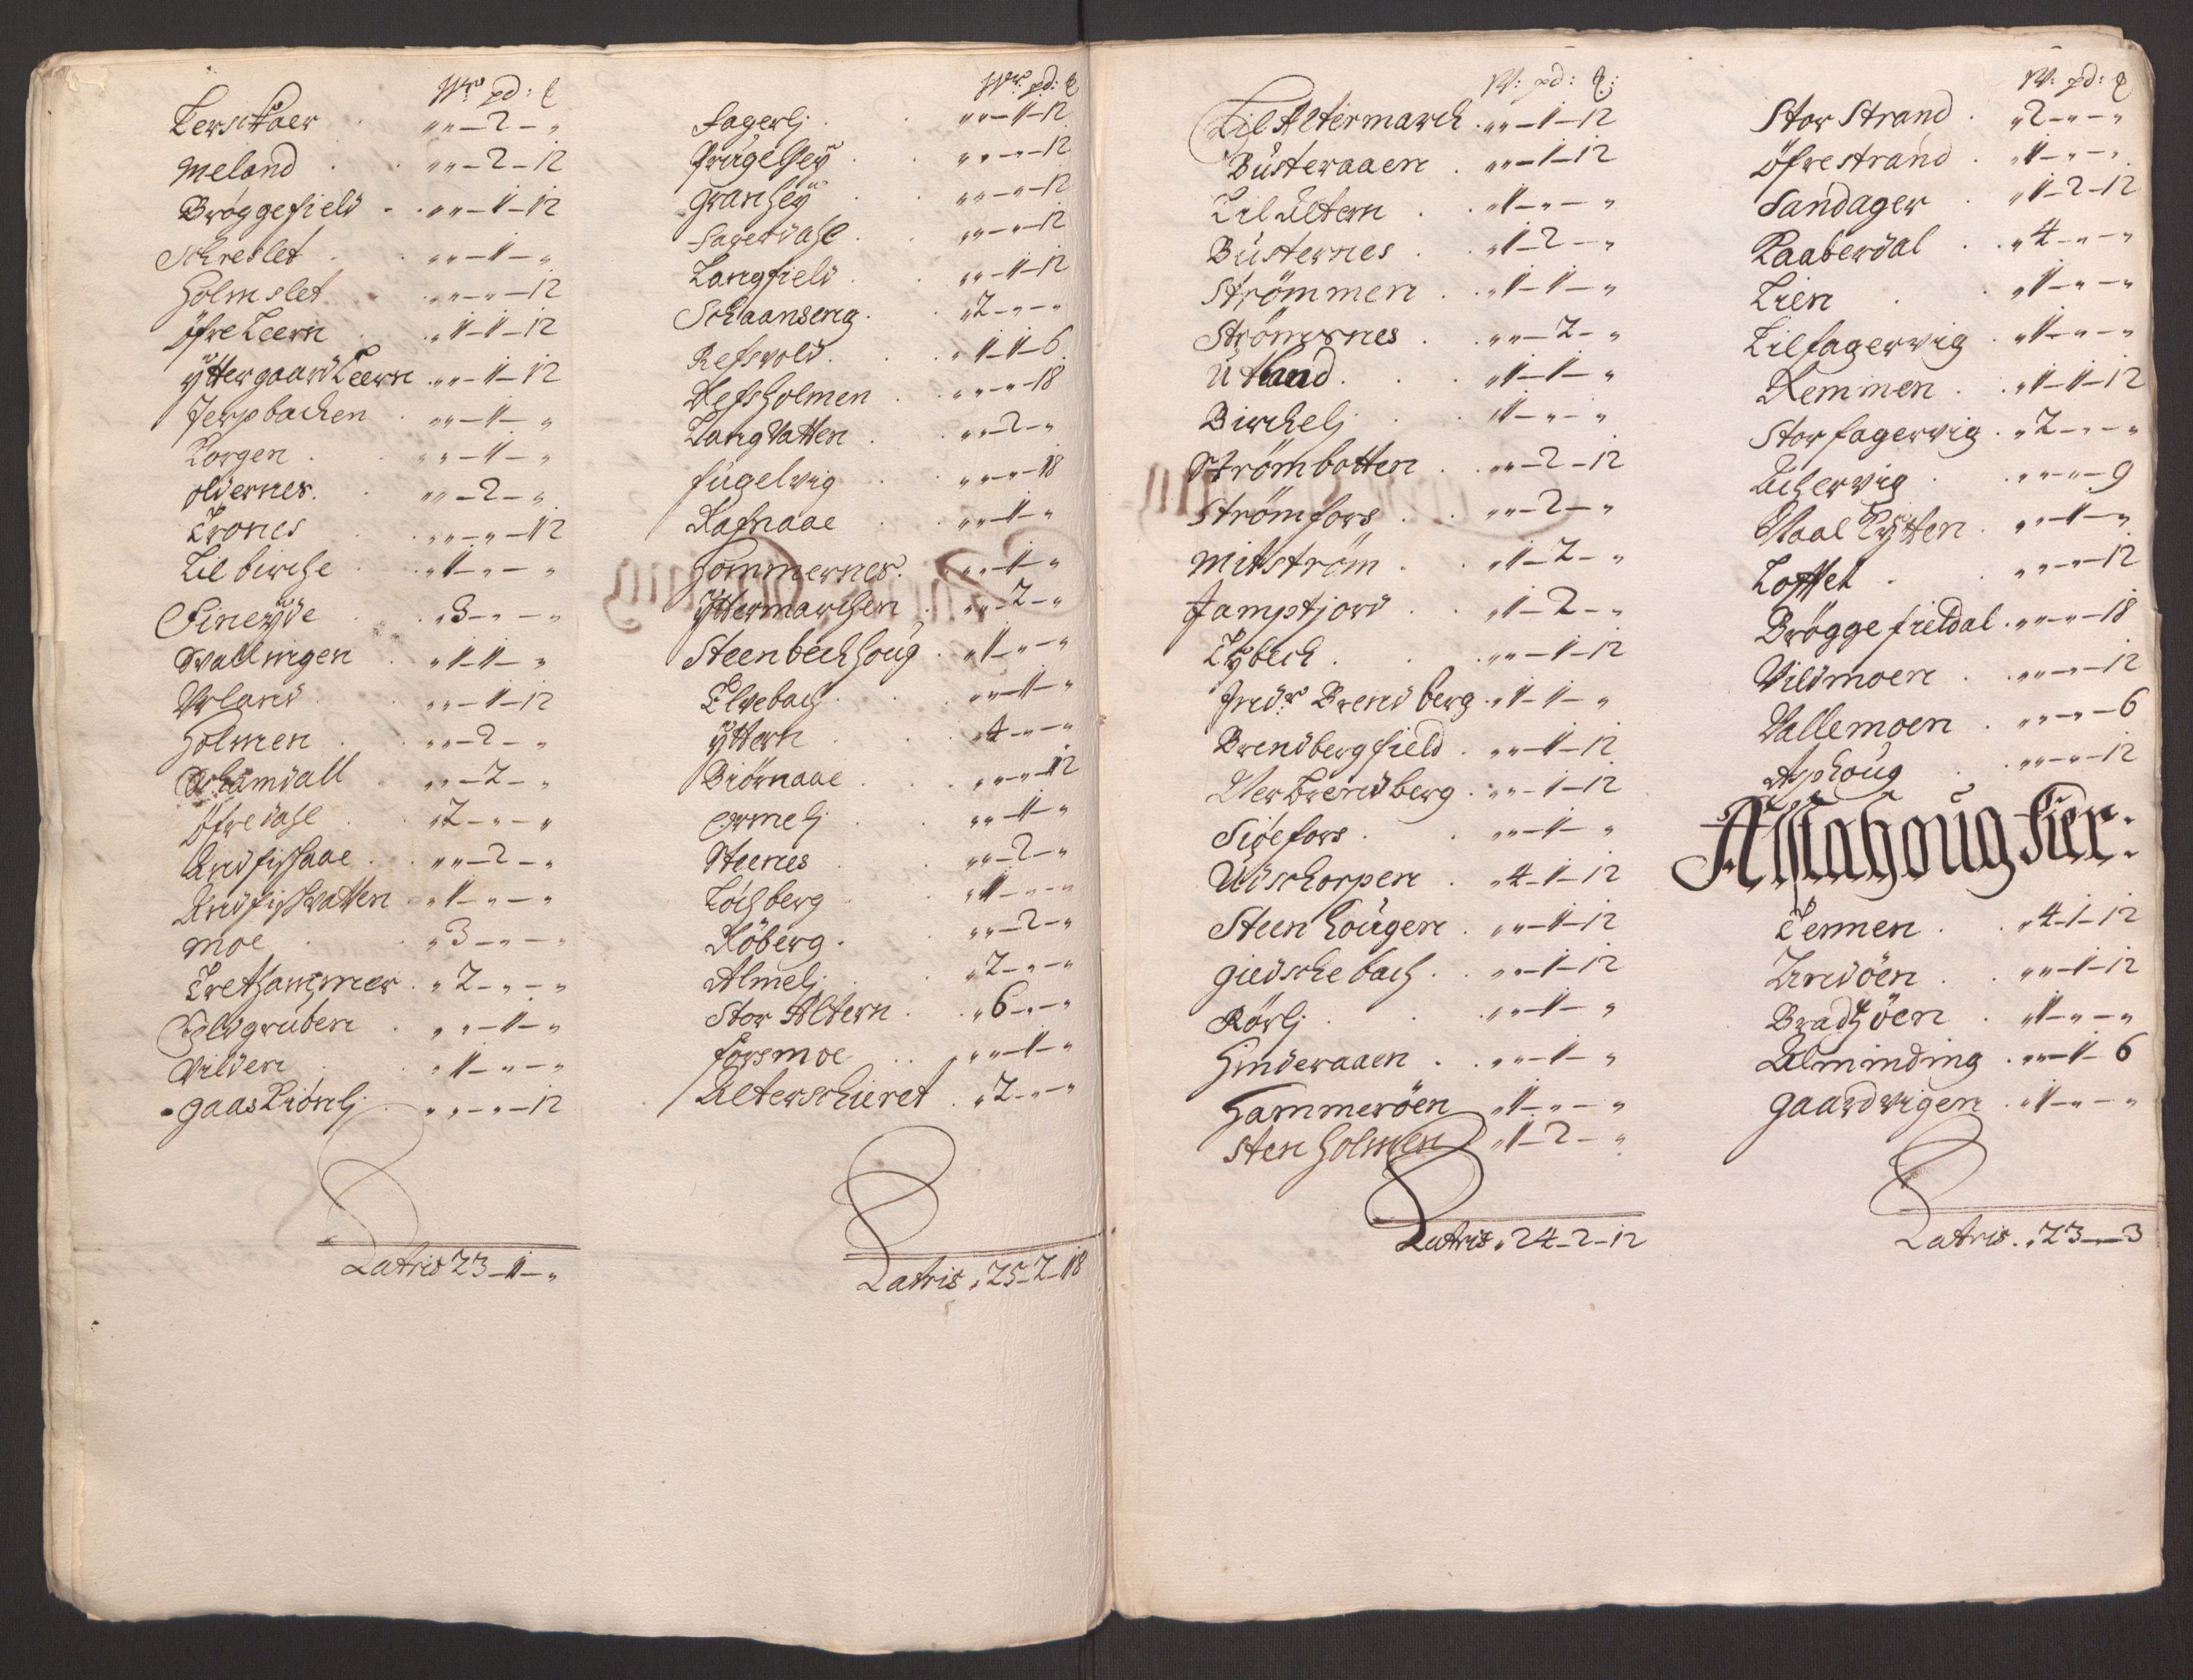 Wr pd: ℔
Lerschaer . „„-2-„
Meland . „„-2-12
Bröggefield . „„-1-12
Schreslet . „„-1-„
Holmslet . „„-„-12
Öfre Leern . „1-1-12
Yttergaard Leern . „„-1-12
Jerpbachen . „„-1-„
Korgen . „„-1-„
Oldernes . „„-2-„
Trones . „„-„-12
Lil birche . „1-„-„
Fineyde . „3-„-„
Svallnigen . „1-1-„
Urland . „„-1-12
Holmen . „„-2-„
Schamdall . „„-2-„
Öfredahl . „2-„-„
Andfishaae . „„-2-„
Andfishvatten . „1-„-„
Moe . „3-„-„
Trethammer . „2-„-„
Sölvgruben . „„-1-„
Vilden . „1-„-„
Gaaskiönlj . „„-„-12
Latris 23-1-„
Wr pd: ℔
Fagerlj . „„-1-12
Frugelhey . „„-„-12
Granhey . „„-„-12
Fagerdahl . „„-„-12
Langfield . „„-1-12
Schaanseng . „2-„-„
Refsvold . „1-1-6
Refsholmen . „„-„-18
Langvatten . „„-2-„
Fugelvig . „„-„-18
Rafnaae . „„-1-„
Hommernes . „„-1-„
Yttermarchen . „„-2-„
Steenbechhoug . „1-„-„
Elvebach . „„-1-„
Yttern . „4-„-„
Biörnaae . „„-„-12
Ormelj . „„-1-„
Steenes . „„-2-„
Lochberg . „1-„-„
Röberg . „„-2-„
Almelj . „2-„-„
Stor Altern . „6-„-„
Forsmoe . „„-1-„
Alterschieret . „2-„-„
Latris . 25-2-18
W: pd: ℔:
Lil Altermarch . „„-1-12
Busteraaen . „„-1-12
Lil Altern . „1-„-„
Busternes . „1-2-„
Strömmen . „1-1-„
Strömsnes . „„-2-„
Utland . „1-1-„
Birchelj . „1-„-„
Strömbotten . „„-2-12
Strömfors . „„-2-„
Mitström . „1-2-„
Jampfjord . „1-2-„
Lybech . „„-1-12
Indr Brendberg . „1-1-„
Brendbergfield . „„-1-12
Uter Brendberg . „„-1-12
Siöefors . „„-1-„
Uldschorpen . „4-1-12
Steenhougen . „„-1-12
Giedschebach . „„-1-12
Rörlj . „„-1-„
Hinderaaen . „„-1-„
Hammeröen . „1-„-„
Stenholmen . „1-2-„
Latris . 24-2-12
W: pd: ℔
Stor Strand . „2-„-„
Öfrestrand . „1-„-„
Sandager . „1-2-12
Raaberdal . „4-„-„
Lien . „1-„-„
Lilfagervig . „1-„-„
Remmen . „1-1-12
Storfagervig . „2-„-„
Achervig . „„-„-9
Staalrytten . „„-1-„
Loftet . „„-„-12
Bröggefieldal . „„-„-18
Vildmoen . „„-„-12
Vallemoen . „„-„-6
Asphoug . „„-„-12
Alstahoug Fier:
Tennen . „4-1-12
Andöen . „„-1-12
Bradtzöen . „1-„-„
Alminding . „„-1-6
Gaardvigen . „1-„-„
Latris . 23-„-3